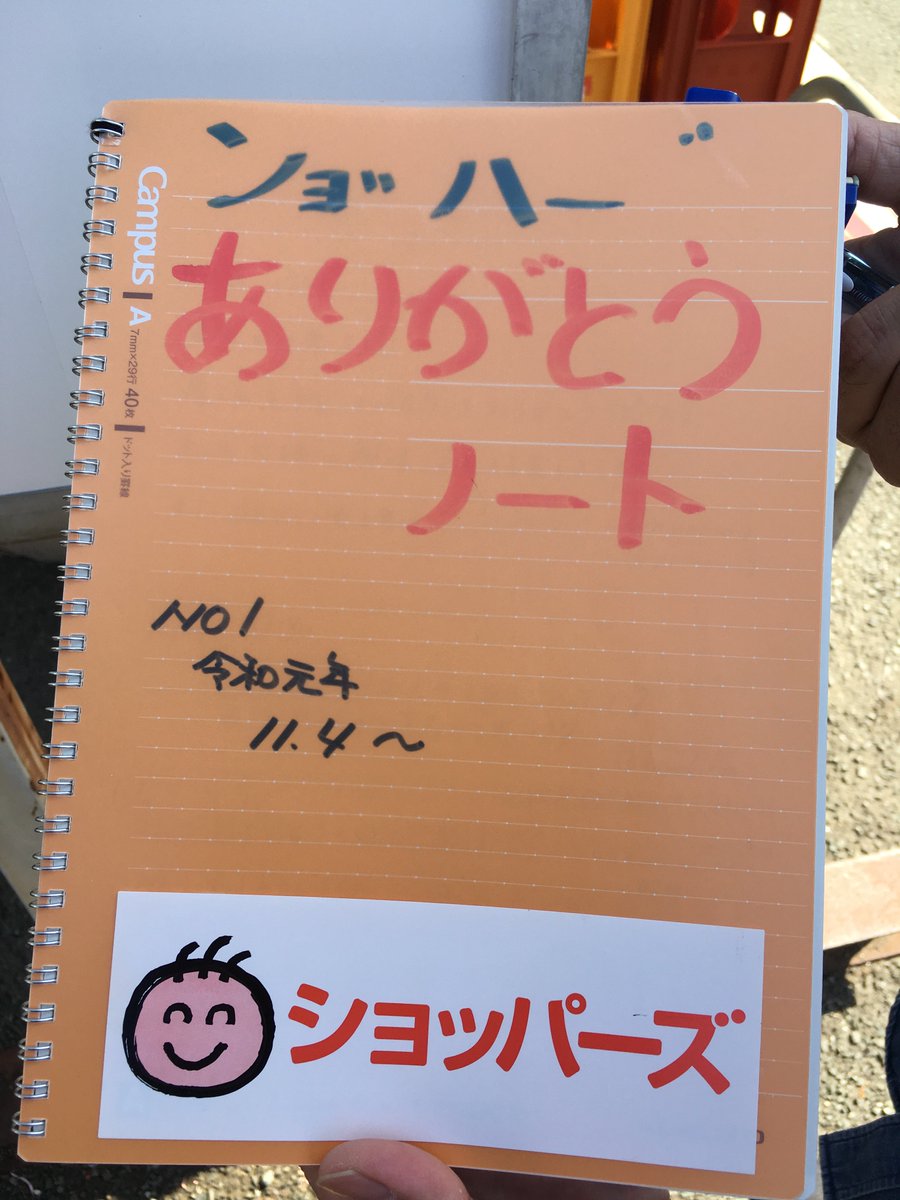 ンョッハー゛
ありがとう
ノート
NO1
令和元年
11.4～
ショッパーズ
Campus A 7mm×29行 40枚 ドット入り罫線